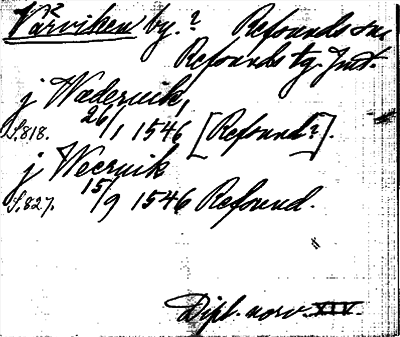 Värviken by.? Refsunds sn.
Refsunds tg. Jmt.
j Waderuik,
S.818. 26/1 1546 [Refsund?].
j Wecruik
S.827. 15/9 1546 Refsund.
Dipl. norv. XIV.